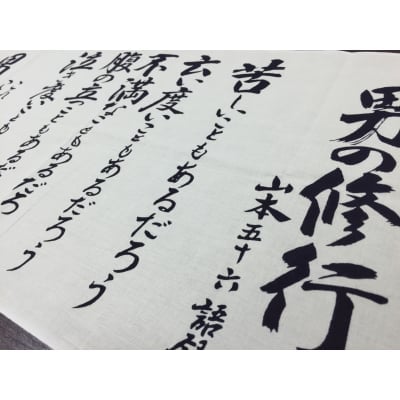 男の修行
山本五十六 語録
苦しいこともあるだろう
云い度いこともあるだろう
不満なこともあるだろう
腹の立つこともあるだろう
泣き度いこともあるだろう